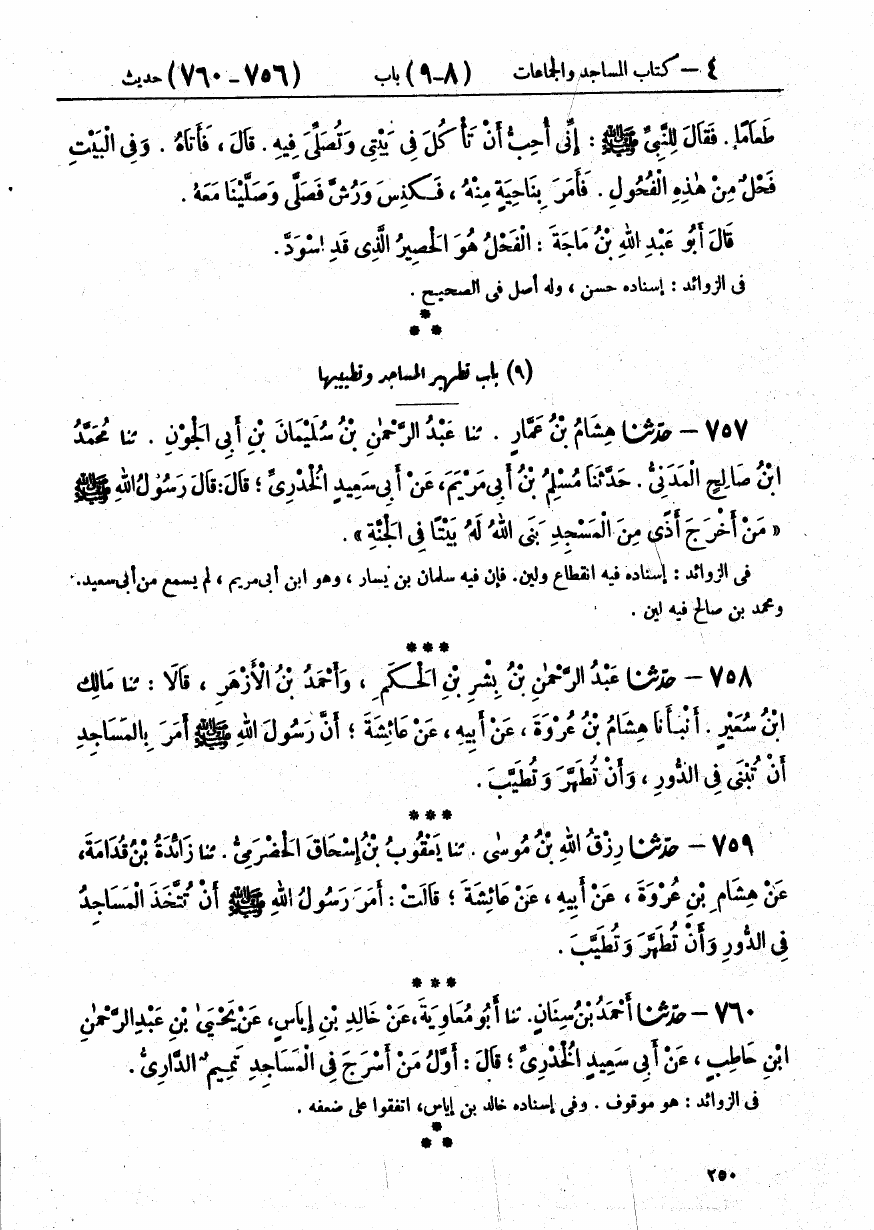 ٤ — كتاب المساجد والجماعات (٨-٩) باب (٧٥٦-٧٦٠) حديث
طَعَامًا. فَقَالَ لِلنَّبِيِّ ﷺ : إِنِّى أُحِبُّ أَنْ تَأْكُلَ فِى بَيْتِى وَتُصَلِّىَ فِيهِ. قَالَ، فَأَتَاهُ. وَفِى الْبَيْتِ
فَحْلٌ مِنْ هٰذِهِ الْفُحُولِ. فَأَمَرَ بِنَاحِيَةٍ مِنْهُ، فَكُنِسَ وَرُشَّ فَصَلَّى وَصَلَّيْنَا مَعَهُ.
قَالَ أَبُو عَبْدِ اللهِ بْنُ مَاجَةَ : الْفَحْلُ هُوَ الْحَصِيرُ الَّذِى قَدِ اسْوَدَّ.
فى الزوائد : إسناده حسن، وله أصل فى الصحيح.
*
* *
(٩) باب تطهير المساجد وتطييبها
٧٥٧ — حدّثنا هِشَامُ بْنُ عَمَّارٍ. ثنا عَبْدُ الرَّحْمٰنِ بْنُ سُلَيْمَانَ بْنِ أَبِى الْجَوْنِ. ثنا مُحَمَّدُ
ابْنُ صَالِحٍ الْمَدَنِىُّ. حَدَّثَنَا مُسْلِمُ بْنُ أَبِى مَرْيَمَ، عَنْ أَبِى سَعِيدٍ الْخُدْرِىِّ؛ قَالَ: قَالَ رَسُولُ اللهِ ﷺ
« مَنْ أَخْرَجَ أَذًى مِنَ الْمَسْجِدِ بَنَى اللهُ لَهُ بَيْتًا فِى الْجَنَّةِ ».
فى الزوائد : إسناده فيه انقطاع ولين. فإن فيه سلمان بن يسار، وهو ابن أبى مريم، لم يسمع من أبى سعيد.
ومحمد بن صالح فيه لين.
* * *
٧٥٨ — حدّثنا عَبْدُ الرَّحْمٰنِ بْنُ بِشْرِ بْنِ الْحَكَمِ، وَأَحْمَدُ بْنُ الْأَزْهَرِ، قَالَا : ثنا مَالِكُ
ابْنُ سُعَيْرٍ. أَنْبَأَنَا هِشَامُ بْنُ عُرْوَةَ، عَنْ أَبِيهِ، عَنْ عَائِشَةَ؛ أَنَّ رَسُولَ اللهِ ﷺ أَمَرَ بِالْمَسَاجِدِ
أَنْ تُبْنَى فِى الدُّورِ، وَأَنْ تُطَهَّرَ وَتُطَيَّبَ.
* * *
٧٥٩ — حدّثنا رِزْقُ اللهِ بْنُ مُوسٰى. ثنا يَعْقُوبُ بْنُ إِسْحَاقَ الْحَضْرَمِىُّ. ثنا زَائِدَةُ بْنُ قُدَامَةَ،
عَنْ هِشَامِ بْنِ عُرْوَةَ، عَنْ أَبِيهِ، عَنْ عَائِشَةَ؛ قَالَتْ : أَمَرَ رَسُولُ اللهِ ﷺ أَنْ تُتَّخَذَ الْمَسَاجِدُ
فِى الدُّورِ وَأَنْ تُطَهَّرَ وَتُطَيَّبَ.
* * *
٧٦٠ — حدّثنا أَحْمَدُ بْنُ سِنَانٍ. ثنا أَبُو مُعَاوِيَةَ، عَنْ خَالِدِ بْنِ إِيَاسٍ، عَنْ يَحْيَىٰ بْنِ عَبْدِ الرَّحْمٰنِ
ابْنِ حَاطِبٍ، عَنْ أَبِى سَعِيدٍ الْخُدْرِىِّ؛ قَالَ : أَوَّلُ مَنْ أَسْرَجَ فِى الْمَسَاجِدِ تَمِيمٌ الدَّارِىُّ.
فى الزوائد : هو موقوف. وفى إسناده خالد بن إياس، اتفقوا على ضعفه.
*
* *
٢٥٠